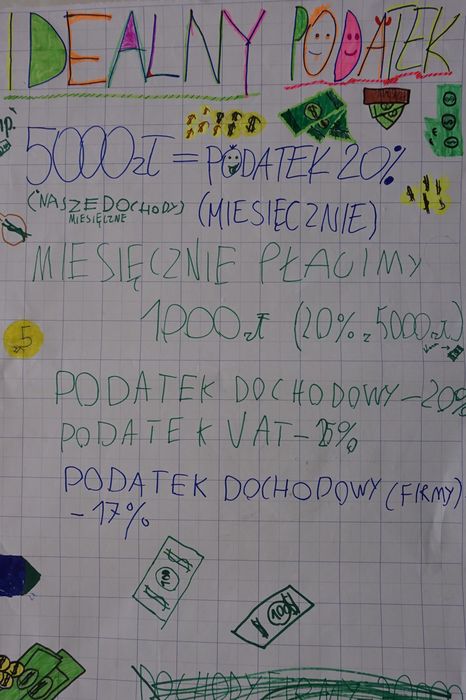 IDEALNY PODATEK
np.
5000zł = PODATEK 20%
(NASZE DOCHODY) (MIESIĘCZNIE)
MIESIĘCZNE
MIESIĘCZNIE PŁACIMY
1000zł (20% z 5000zł)
5
PODATEK DOCHODOWY - 20%
PODATEK VAT - 15%
PODATEK DOCHODOWY (FIRMY)
- 17%
100
100